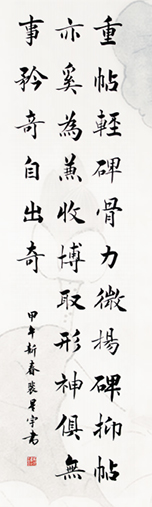 重帖輕碑骨力微揚碑抑帖
亦奚為兼收博取形神俱無
事矜奇自出奇
甲午新春裴星宇書